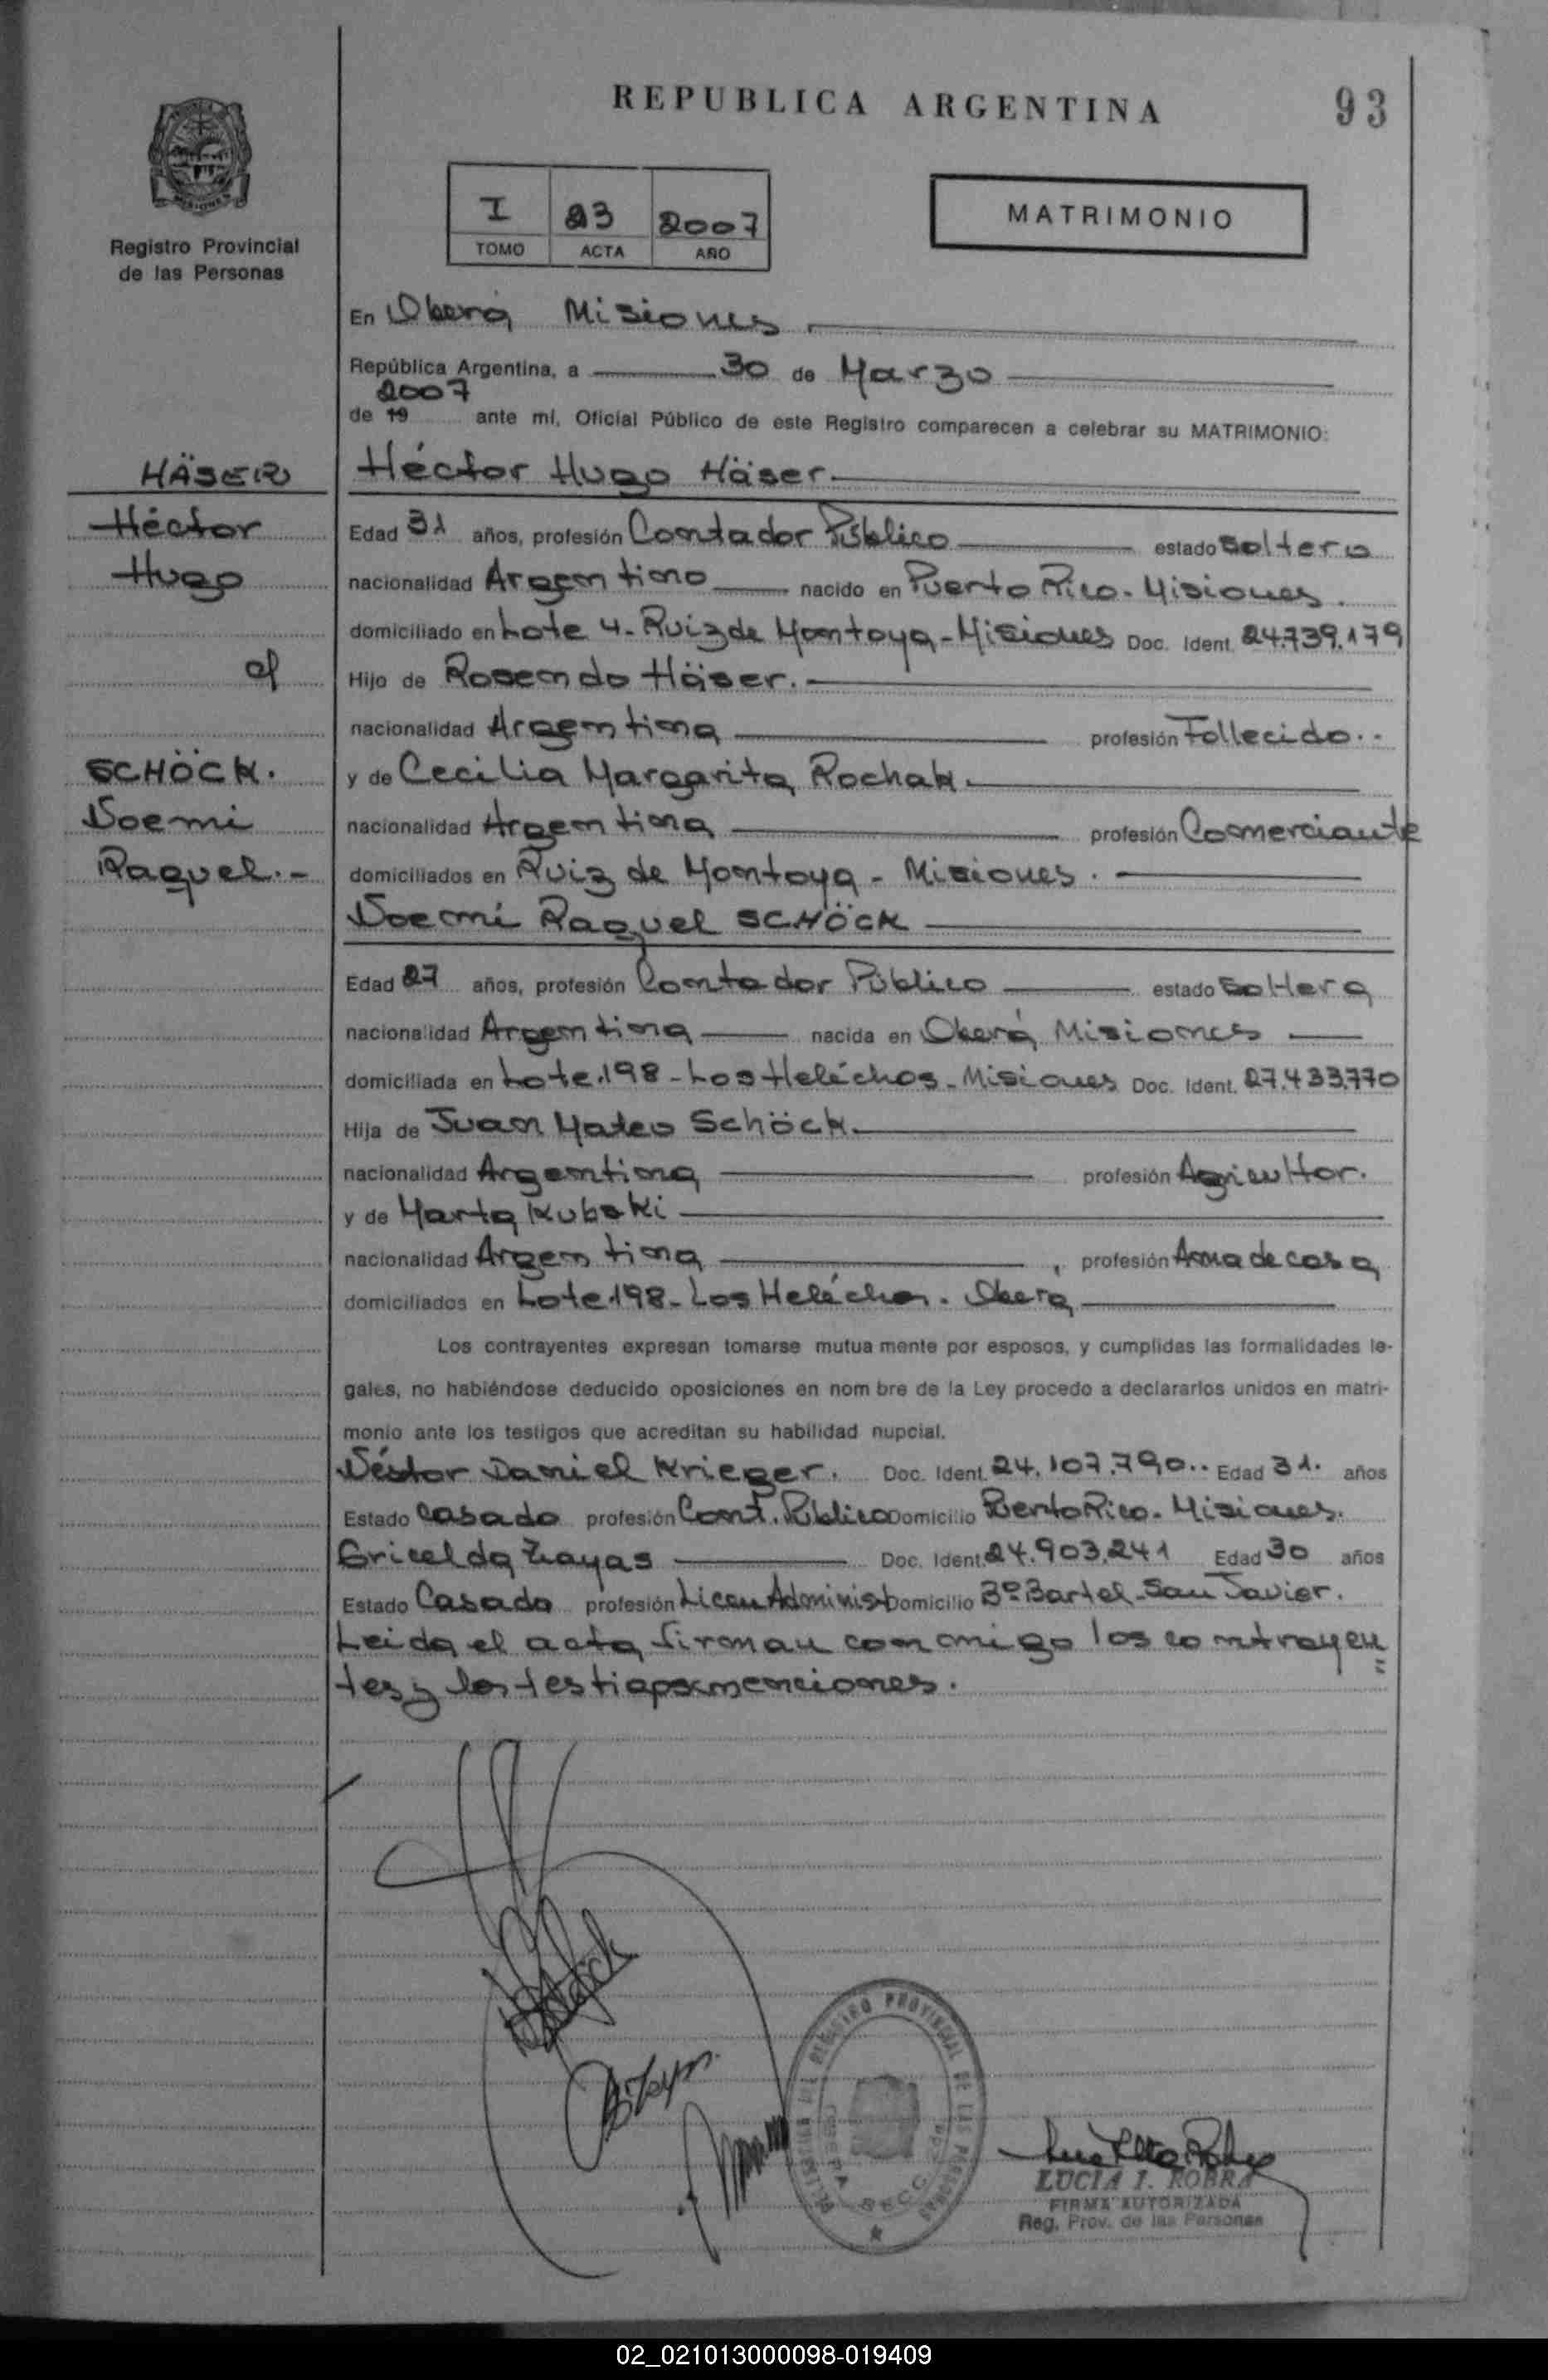 REPUBLICA ARGENTINA
93
Registro Provincial
de las Personas
I 93 2007
TOMO ACTA AÑO
MATRIMONIO
En Oberá Misiones
República Argentina, a 30 de Marzo
2007
de 19 ante mí, Oficial Público de este Registro comparecen a celebrar su MATRIMONIO:
HÄSER
Héctor
Hugo
c/
SCHÖCK.
Noemi
Raquel.-
Héctor Hugo Häser
Edad 31 años, profesión Contador Público estado Soltero
nacionalidad Argentino nacido en Puerto Rico. Misiones.
domiciliado en Lote 4-Ruiz de Montoya-Misiones Doc. Ident. 24.739.179
Hijo de Rosendo Häser.
nacionalidad Argentina profesión Fallecido..
y de Cecilia Margarita Rochak.
nacionalidad Argentina profesión Comerciante
domiciliados en Ruiz de Montoya - Misiones.
Noemí Raquel SCHÖCK
Edad 27 años, profesión Contador Público estado Soltera
nacionalidad Argentina nacida en Oberá Misiones
domiciliada en Lote.198-Los Heléchos-Misiones Doc. Ident. 27.433.770
Hija de Juan Mateo Schöck.
nacionalidad Argentina profesión Agricultor.
y de Marta Kubski
nacionalidad Argentina, profesión Ama de casa
domiciliados en Lote 198-Los Heléchos. Obera
Los contrayentes expresan tomarse mutua mente por esposos, y cumplidas las formalidades le-
gales, no habiéndose deducido oposiciones en nom bre de la Ley procedo a declararlos unidos en matri-
monio ante los testigos que acreditan su habilidad nupcial.
Néstor Daniel Krieger. Doc. Ident. 24.107.790.. Edad 31. años
Estado Casado profesión Cont. Público Domicilio Puerto Rico. Misiones.
Griselda Zayas Doc. Ident. 24.903.241 Edad 30 años
Estado Casada profesión Licen Administ Domicilio Bº Bartel-San Javier.
Leida el acta firman conmigo los contrayen
tes y los testigos menciones.
REGISTRO PROVINCIAL DE LAS PERSONAS
LUCIA I. ROBRA
FIRMA AUTORIZADA
Reg. Prov. de las Personas
02_021013000098-019409